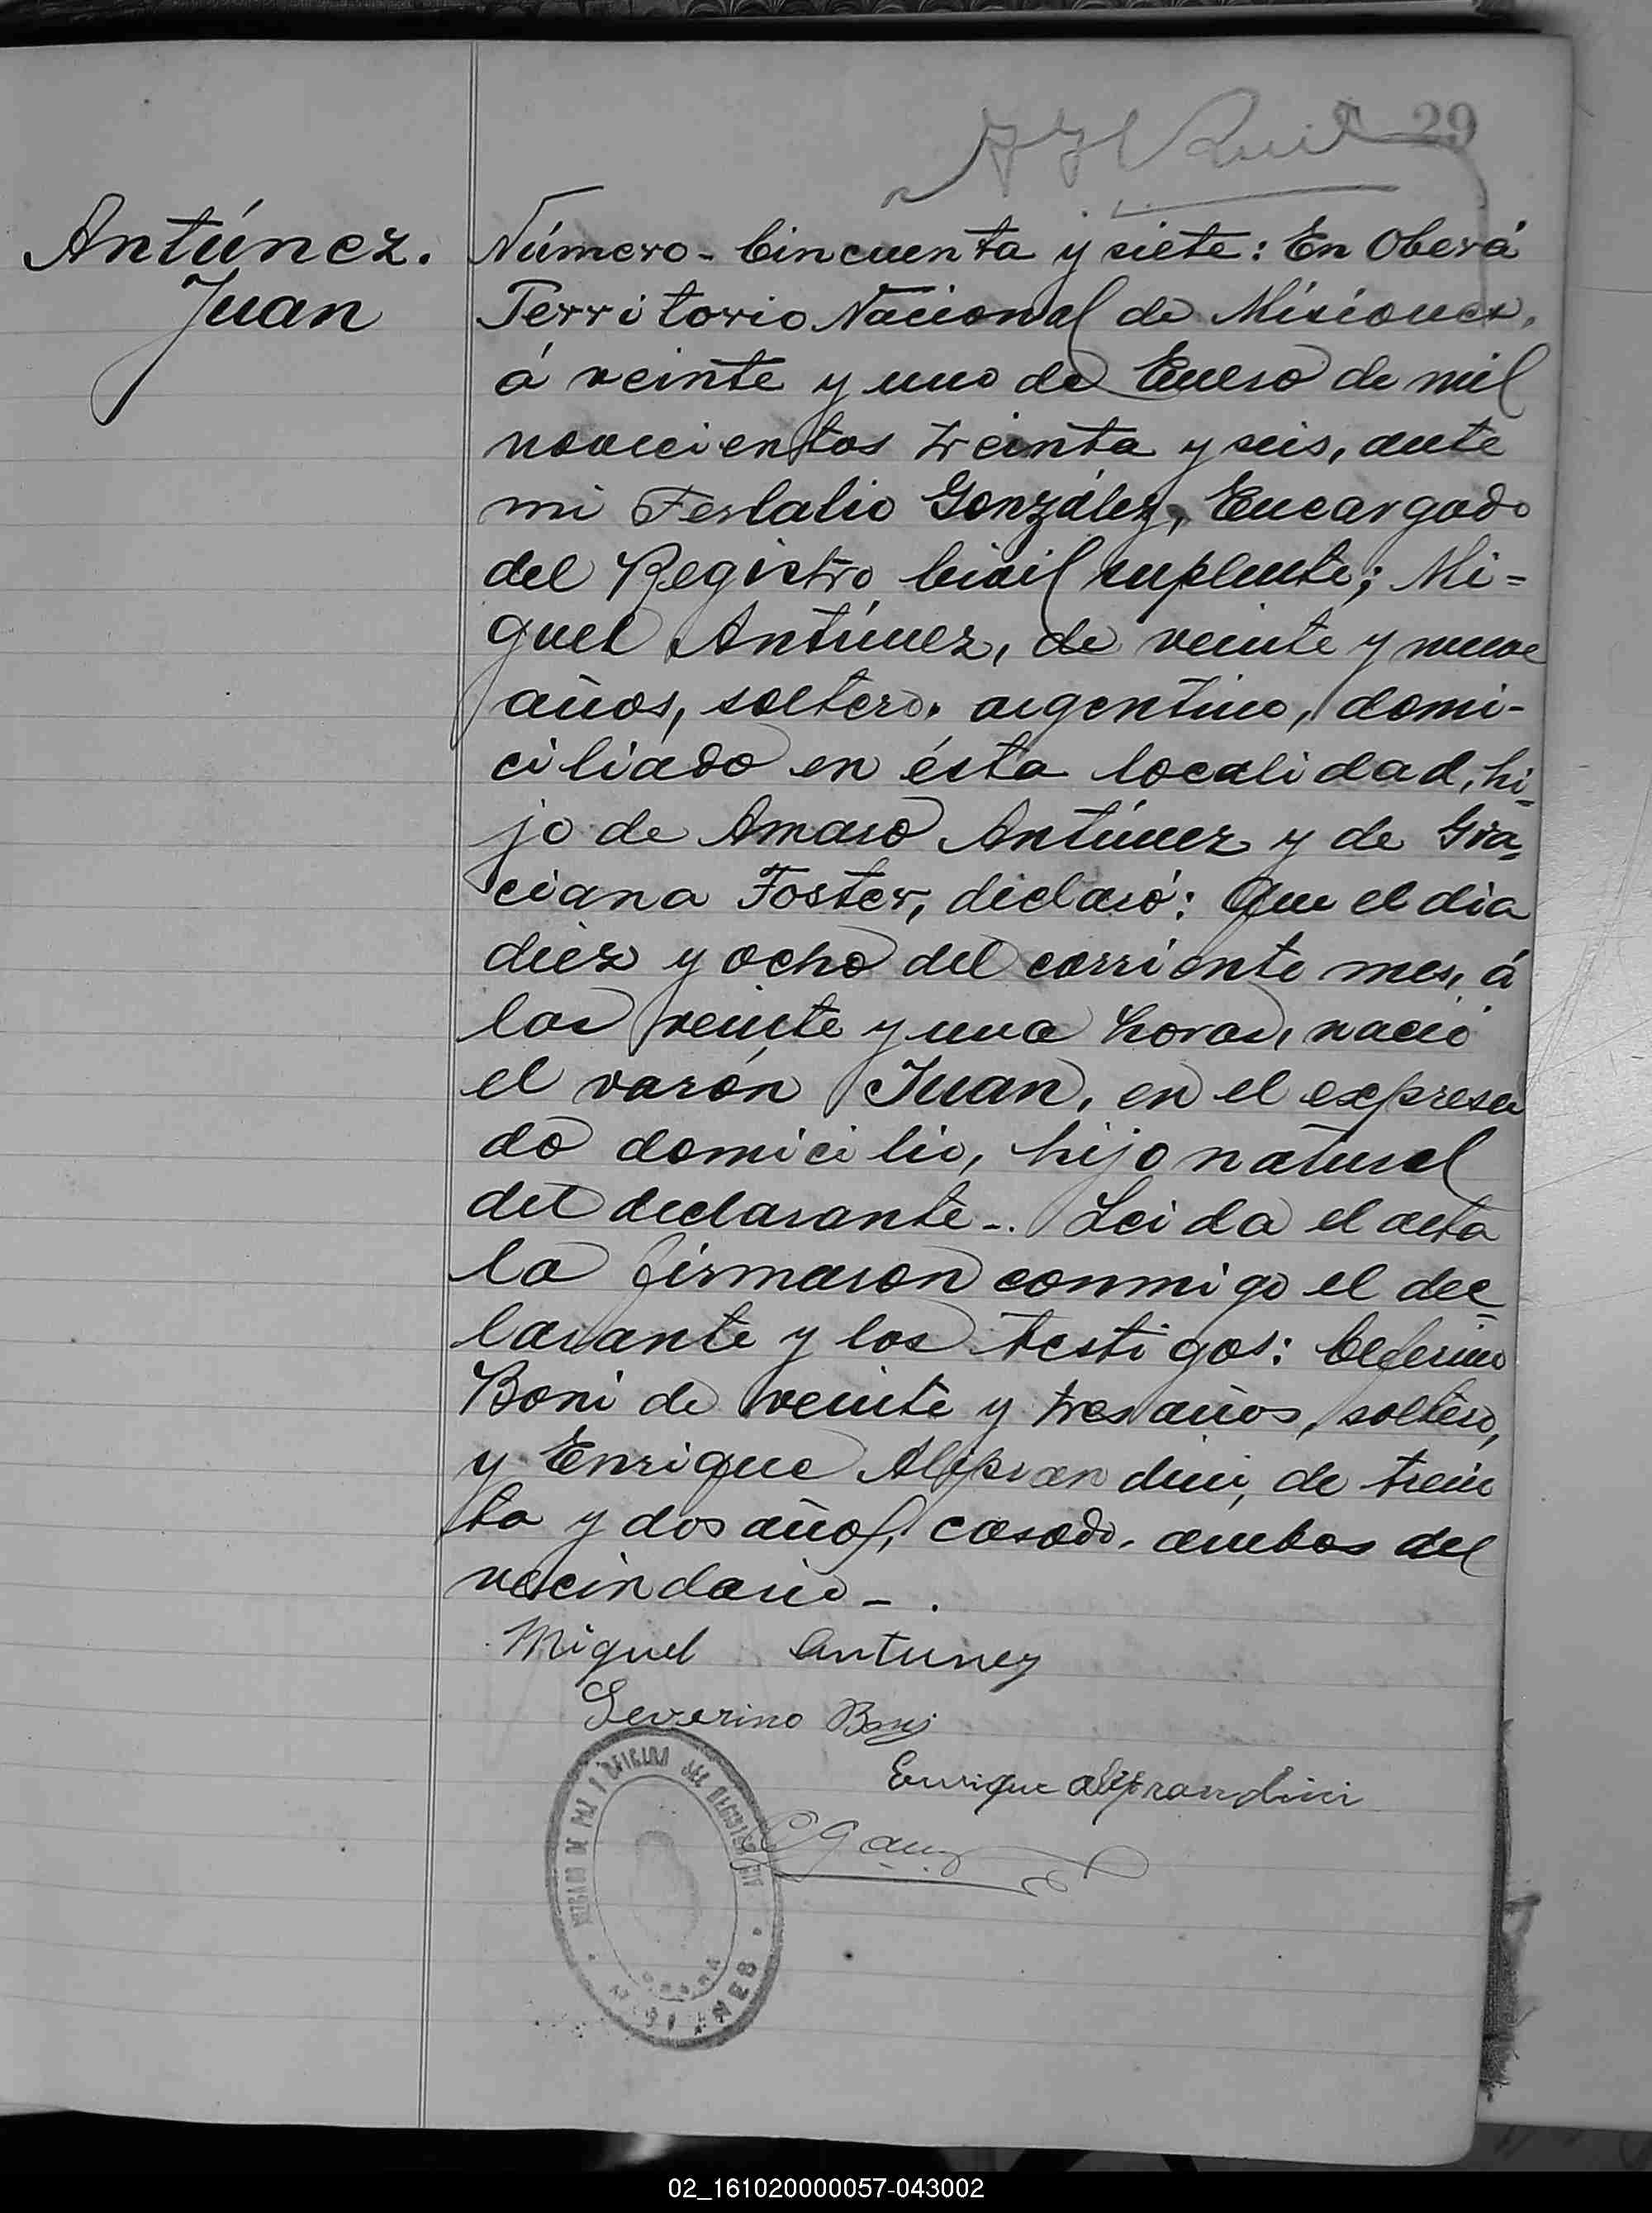 29
Antúnez.
Juan
Número - Cincuenta y siete: En Oberá
Territorio Nacional de Misiones,
á veinte y uno de Enero de mil
novecientos treinta y seis, ante
mi González, Encargado
del Registro Civil suplente; Mi=
guel Antúnez, de veinte y nueve
años, soltero, argentino, domi-
ciliado en ésta localidad, hi=
jo de Amaro Antúnez y de Gra=
ciana Foster, declaró: Que el dia
diez y ocho del corriente mes, á
las veinte y una horas, nació
el varón Juan, en el expresa
do domicilio, hijo natural
del declarante-. Leida el acta
la firmaron conmigo el dec=
larante y los testigos: Ceferino
Boni de veinte y tres años, soltero,
y Enrique Aliprandini, de trein
ta y dos años, casado, ambos del
vecindario-.
Miguel Antunez
Severino Boni
Enrique Aliprandini
JUZGADO DE PAZ Y OFICINA DEL REGISTRO CIVIL
MISIONES
02_161020000057-043002